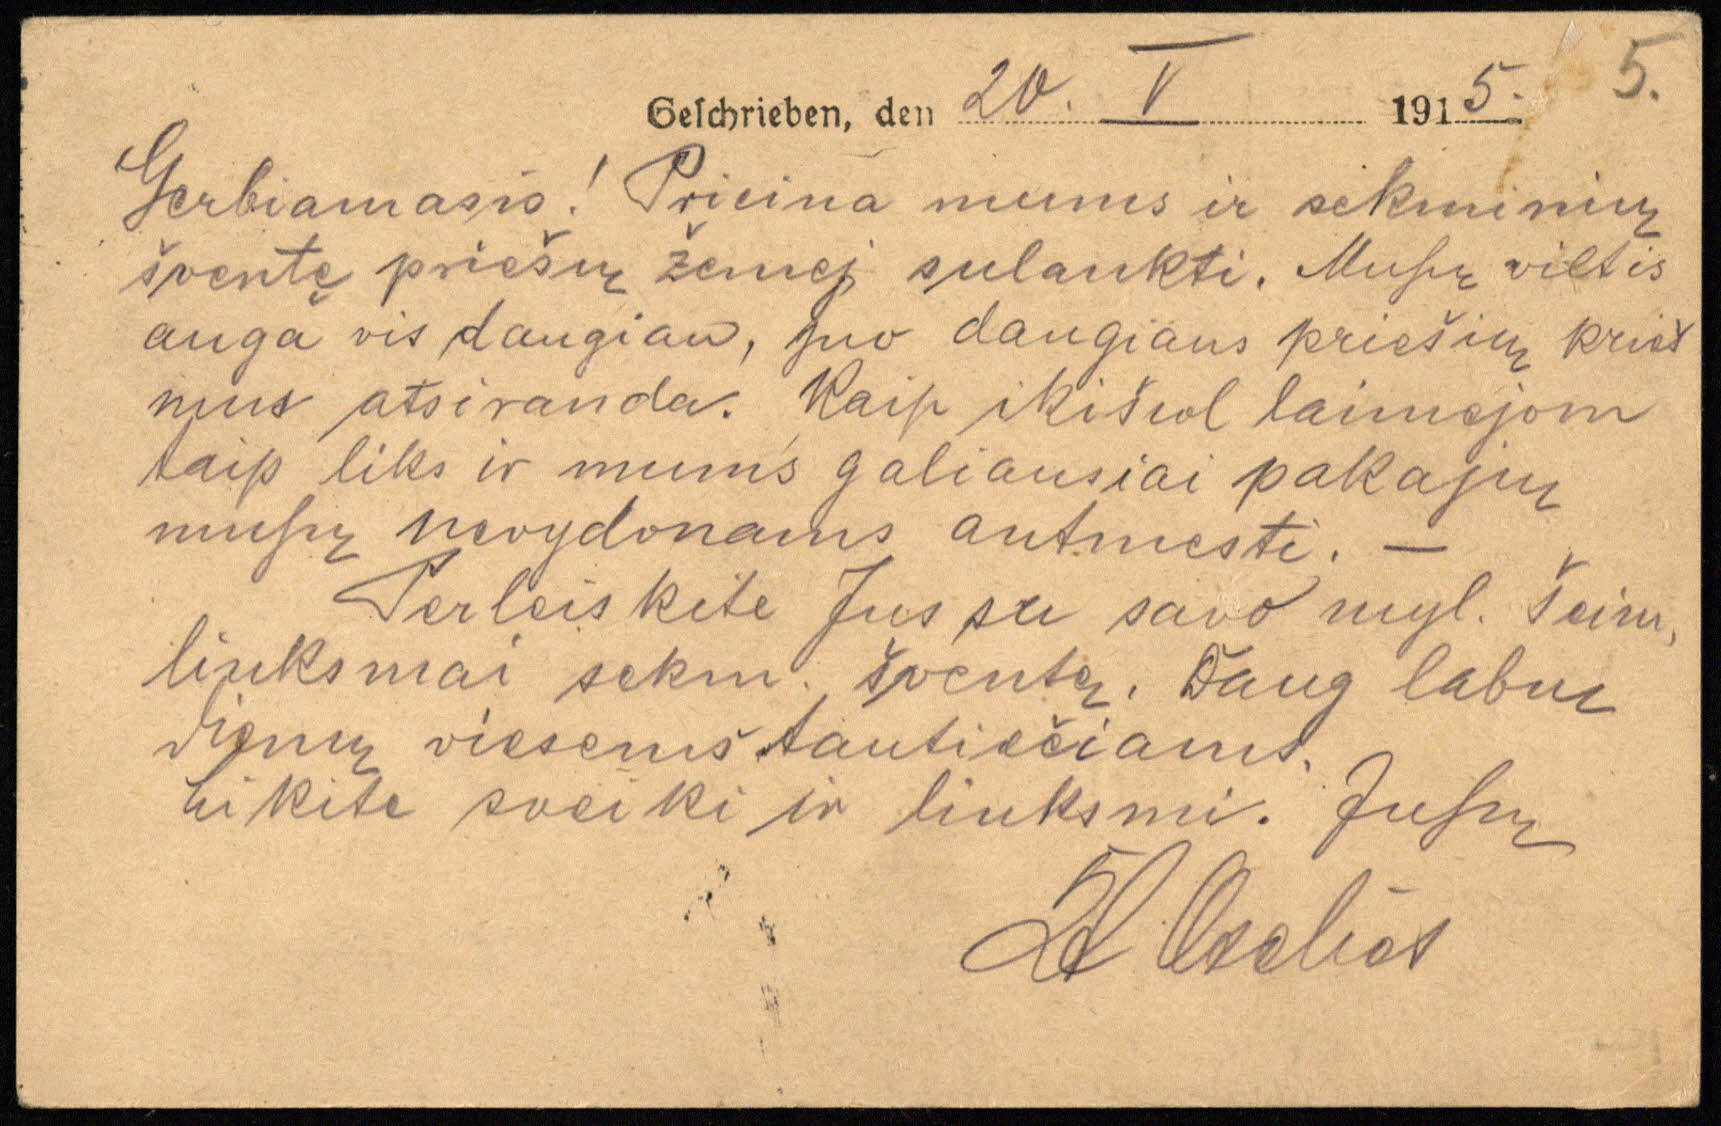 Geschrieben, den 20. V 1915. 5.
Gerbiamasis! Prieina mums ir sekminių
šventę priešų žemėj sulaukti. Musų viltis
auga vis daugiau, juo daugiaus priešių prieš
mus atsiranda. Kaip ikišiol laimejom
taip liks ir mums galiausiai pakajų
musų nevydonams antmesti. —
Perleiskite Jus su savo myl. šeim.
linksmai sekm. šventę. Daug labų
dienų visiems tautiečiams.
Likite sveiki ir linksmi. Jusų